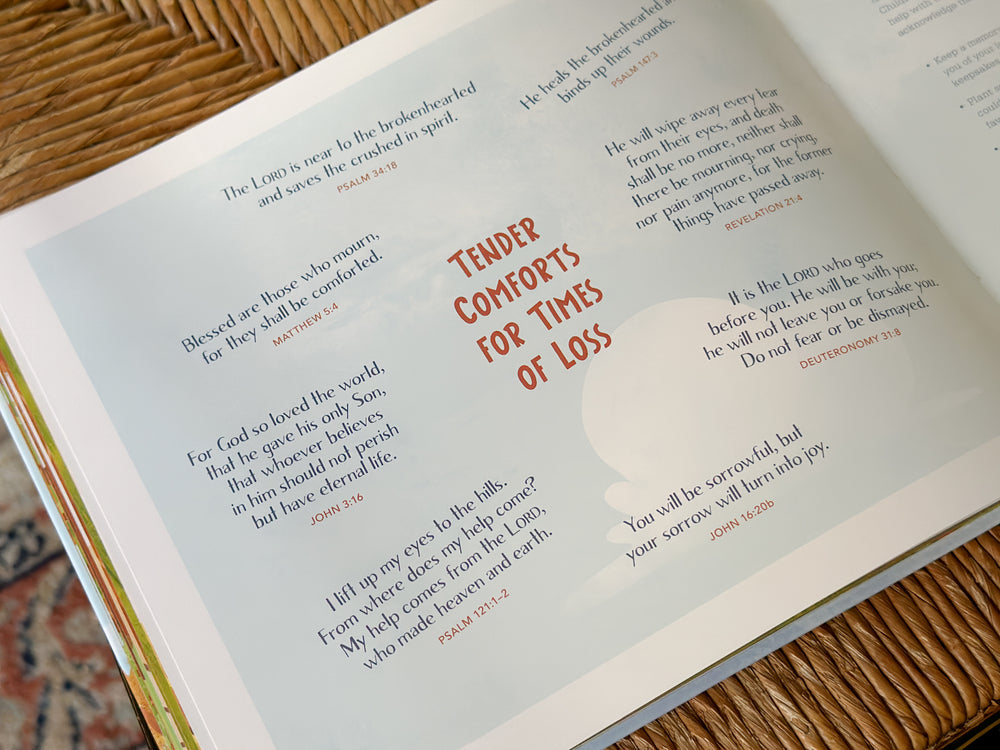 The LORD is near to the brokenhearted
and saves the crushed in spirit.
PSALM 34:18
He heals the brokenhearted
binds up their wounds.
PSALM 147:3
He will wipe away every tear
from their eyes, and death
shall be no more, neither shall
there be mourning, nor crying,
nor pain anymore, for the former
things have passed away.
REVELATION 21:4
Blessed are those who mourn,
for they shall be comforted.
MATTHEW 5:4
TENDER
COMFORTS
FOR TIMES
OF LOSS
It is the LORD who goes
before you. He will be with you;
he will not leave you or forsake you.
Do not fear or be dismayed.
DEUTERONOMY 31:8
For God so loved the world,
that he gave his only Son,
that whoever believes
in him should not perish
but have eternal life.
JOHN 3:16
I lift up my eyes to the hills.
From where does my help come?
My help comes from the LORD,
who made heaven and earth.
PSALM 121:1–2
You will be sorrowful, but
your sorrow will turn into joy.
JOHN 16:20b
help with
acknowledge
• Keep a
you of your
keepsakes
• Plant